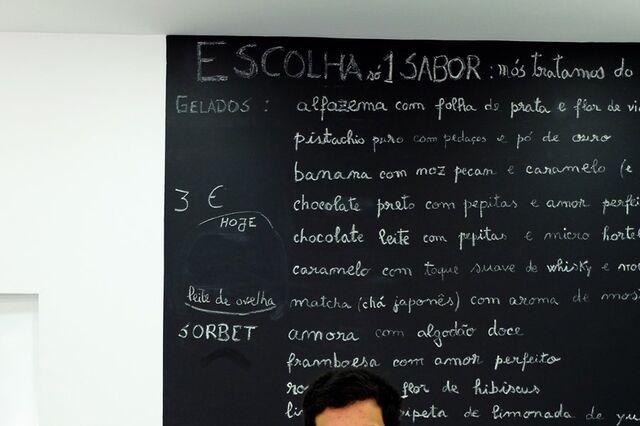 ESCOLHA só 1 SABOR : nós tratamos do
GELADOS : alfazema com folha de prata e flor de
pistachio puro com pedaços e pó de ouro
banana com noz pecan e caramelo (e
3 € chocolate preto com pepitas e amor
HOJE
chocolate leite com pepitas e micro
caramelo com toque suave de whisky e
leite de ovelha matcha (chá japonês) com aroma de
SORBET amora com algodão doce
framboesa com amor perfeito
flor de hibiscus
de limonada de